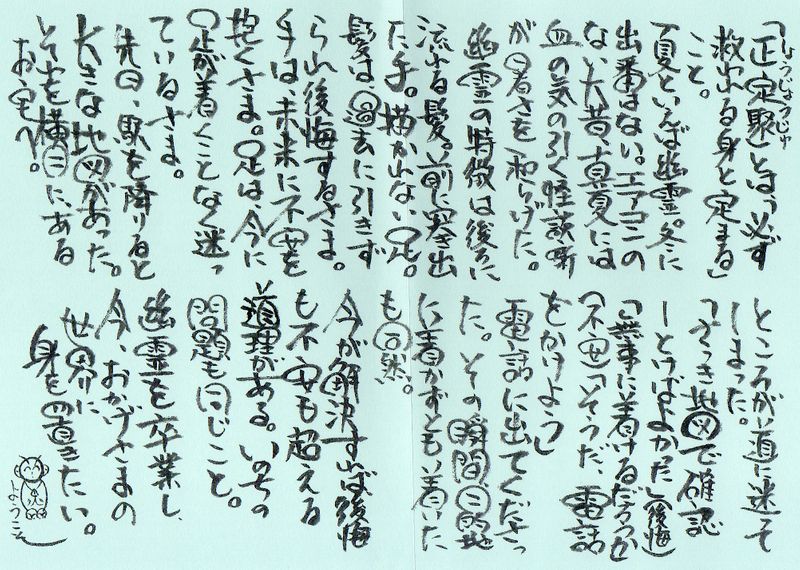 しょうじょうじゅ
「正定聚」とは「必ず
救われる身と定まる」
こと。
夏といえば幽霊。冬に
出番はない。エアコンの
ない大昔、真夏には
血の気の引く怪談噺
が暑さを和らげた。
幽霊の特徴は後ろに
流れる髪。前に突き出
た手。描かれない足。
髪は、過去に引きず
られ後悔するさま。
手は、未来に不安を
抱くさま。足は、今に
足が着くことなく迷っ
ているさま。
先日、駅を降りると
大きな地図があった。
それを横目に、ある
お宅へ。
ところが道に迷って
しまった。
「さっき地図で確認
しとけばよかった」(後悔)
「無事に着けるだろうか」
(不安)「そうだ、電話
をかけよう」
電話に出てくださっ
た。その瞬間、目的地
に着かずとも、着いた
も同然。
今が解決すれば後悔
も不安も超える
道理がある。いのちの
問題も同じこと。
幽霊を卒業し、
今、おかげさまの
世界に
身を置きたい。
ようこそ